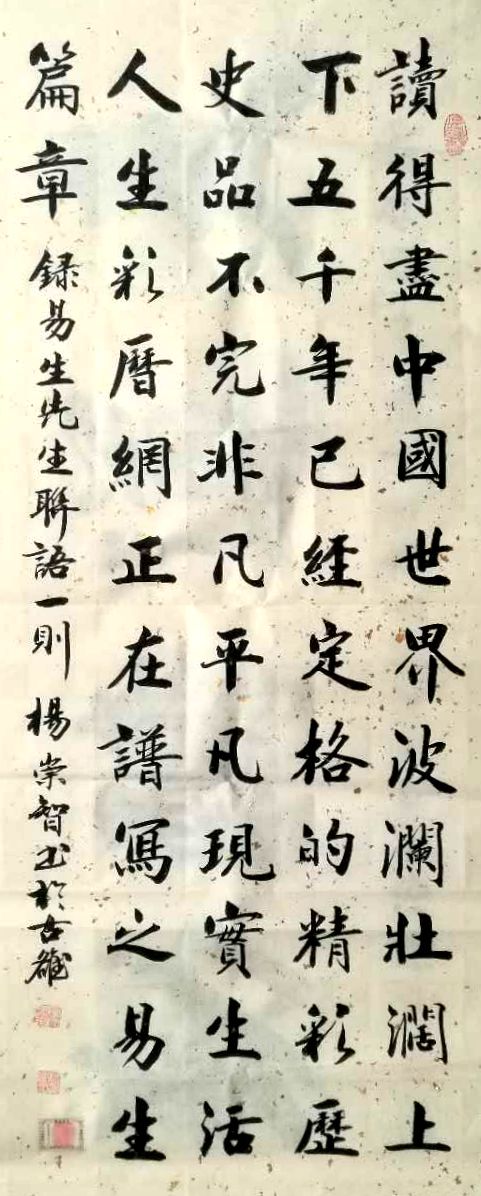 讀得盡中國世界波瀾壯濶上
下五千年已經定格的精彩歷
史品不完非凡平凡現實生活
人生彩曆網正在譜寫之易生
篇章 録易生先生聯語一則 楊崇智书於古